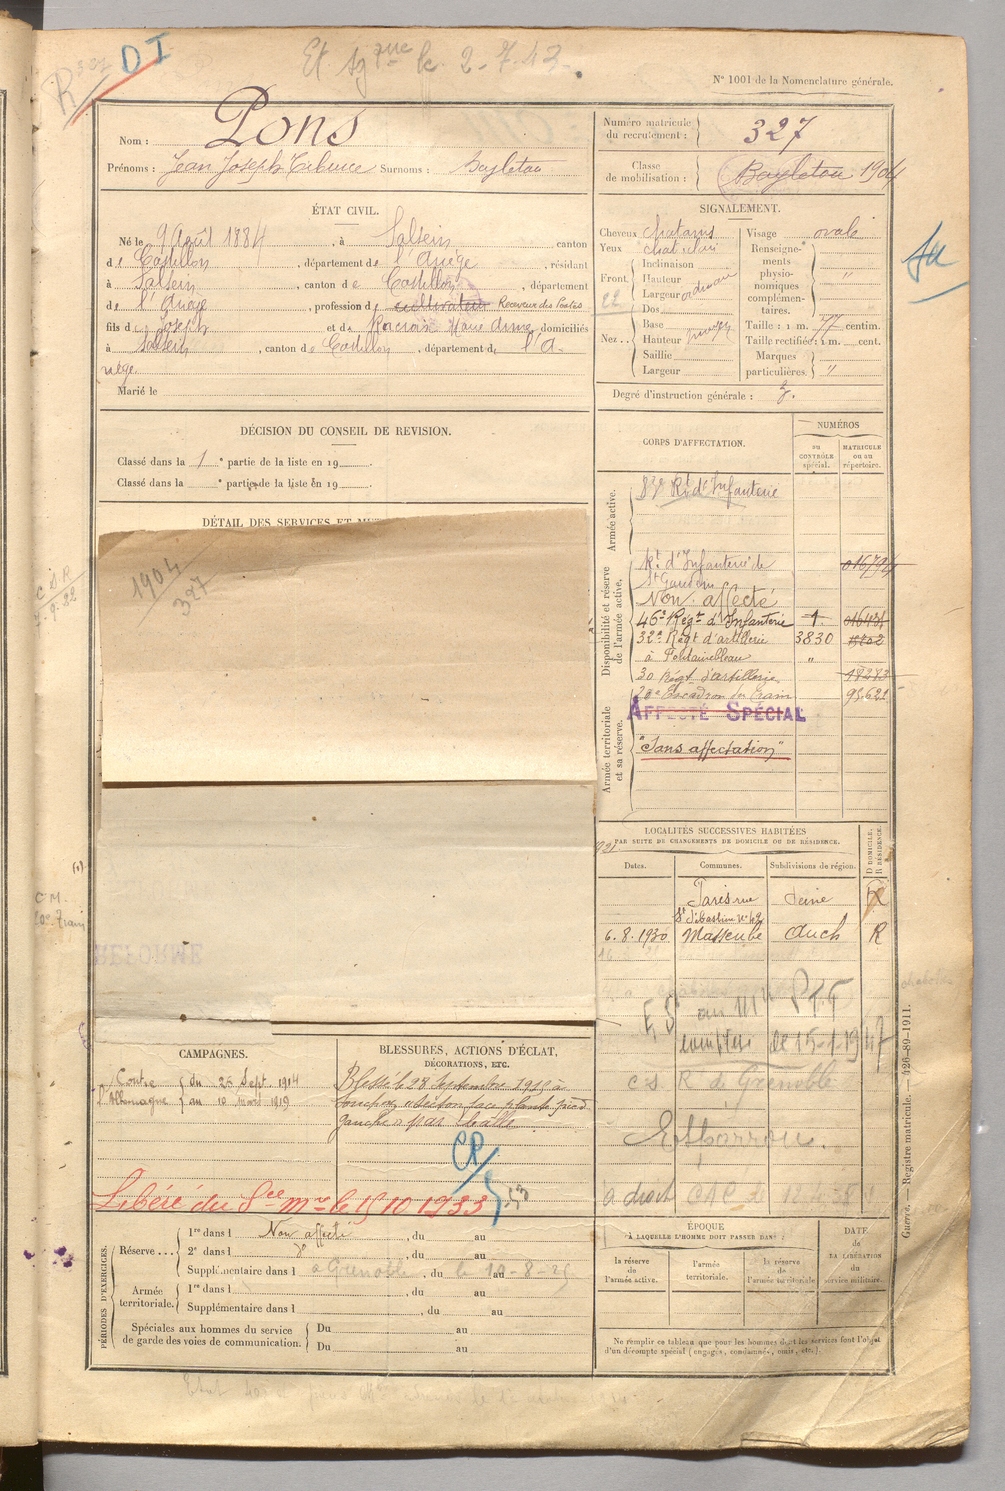 R 327
D I
Et sgnue le 2-7-13.
N° 1001 de la Nomenclature générale.
Nom : Pons
Prénoms : Jean Joseph Tiburce Surnoms : Bayletou
Numéro matricule du recrutement : 327
Classe de mobilisation : Bayletou 1904
ÉTAT CIVIL.
Né le 9 Août 1884, à Salsein canton
de Castillon, département de l'Ariège, résidant
à Salsein, canton de Castillon, département
de l'Ariège, profession de cultivateur Receveur des Postes
fils de Joseph et de domiciliés
à Salsein, canton de Castillon, département de l'A-
riège.
Marié le
SIGNALEMENT.
Cheveux chatains
Yeux chat clair
Front. Inclinaison
Hauteur
Largeur ordinaire
22
Nez.. Dos
Base
Hauteur moyen
Saillie
Largeur
Visage ovale
Renseigne-
ments
physio-
nomiques
complémen-
taires. "
Taille : 1 m. 77 centim.
Taille rectifiée : 1 m. cent.
Marques
particulières. "
Degré d'instruction générale : 3.
DÉCISION DU CONSEIL DE REVISION.
Classé dans la 1e partie de la liste en 19 .
Classé dans la e partie de la liste en 19 .
DÉTAIL DES SERVICES ET
1904
327
CORPS D'AFFECTATION.
NUMÉROS
DU CONTRÔLE spécial.
MATRICULE ou au répertoire.
Armée active.
83e Rt d'Infanterie
Disponibilité et réserve de l'armée active.
Rt d'Infanterie de
St Gaudens
Non affecté
46e Régt d'Infanterie 1
32e Régt d'artillerie 3830
à Fontainebleau "
30 Régt d'artillerie 18283
20e Escadron du Train 95.621
Armée territoriale et sa réserve.
AFFECTÉ SPÉCIAL
"Sans affectation"
LOCALITÉS SUCCESSIVES HABITÉES
PAR SUITE DE CHANGEMENTS DE DOMICILE OU DE RÉSIDENCE.
Dates. Communes. Subdivisions de région. D DOMICILE. R RÉSIDENCE.
Paris rue Seine R
St Sébastien N° 42
6.8.1930 Masseube Auch R
E, S au Mn P.T.T
compter de 15-1-1947
cs R de Grenoble
Esparron.
à droit CAC de
C.M.
20e Train
REFORME
CAMPAGNES.
Contre du 25 Sept. 1914
l'Allemagne au 10 mars 1919
BLESSURES, ACTIONS D'ÉCLAT,
DÉCORATIONS, ETC.
Blessé le 28 Septembre 1915 à
Souchez, section face plante pied
gauche par balle
CP/5
Libéré du Sce Mre le 15 10 1933
PÉRIODES D'EXERCICES.
Réserve... 1re dans l Non affecté, du au
2e dans l do, du au
Supplémentaire dans l à Grenoble, du le 10-8-25 au
Armée territoriale. 1re dans l , du au
Supplémentaire dans l , du au
Spéciales aux hommes du service
de garde des voies de communication. Du au
Du au
ÉPOQUE
À LAQUELLE L'HOMME DOIT PASSER DANS :
la réserve de l'armée active.
l'armée territoriale.
la réserve de l'armée territoriale
DATE de LA LIBÉRATION du service militaire.
Ne remplir ce tableau que pour les hommes dont les services font l'objet
d'un décompte spécial (engagés, condamnés, omis, etc.).
Guerre. — Registre matricule. — 426-89-1911.